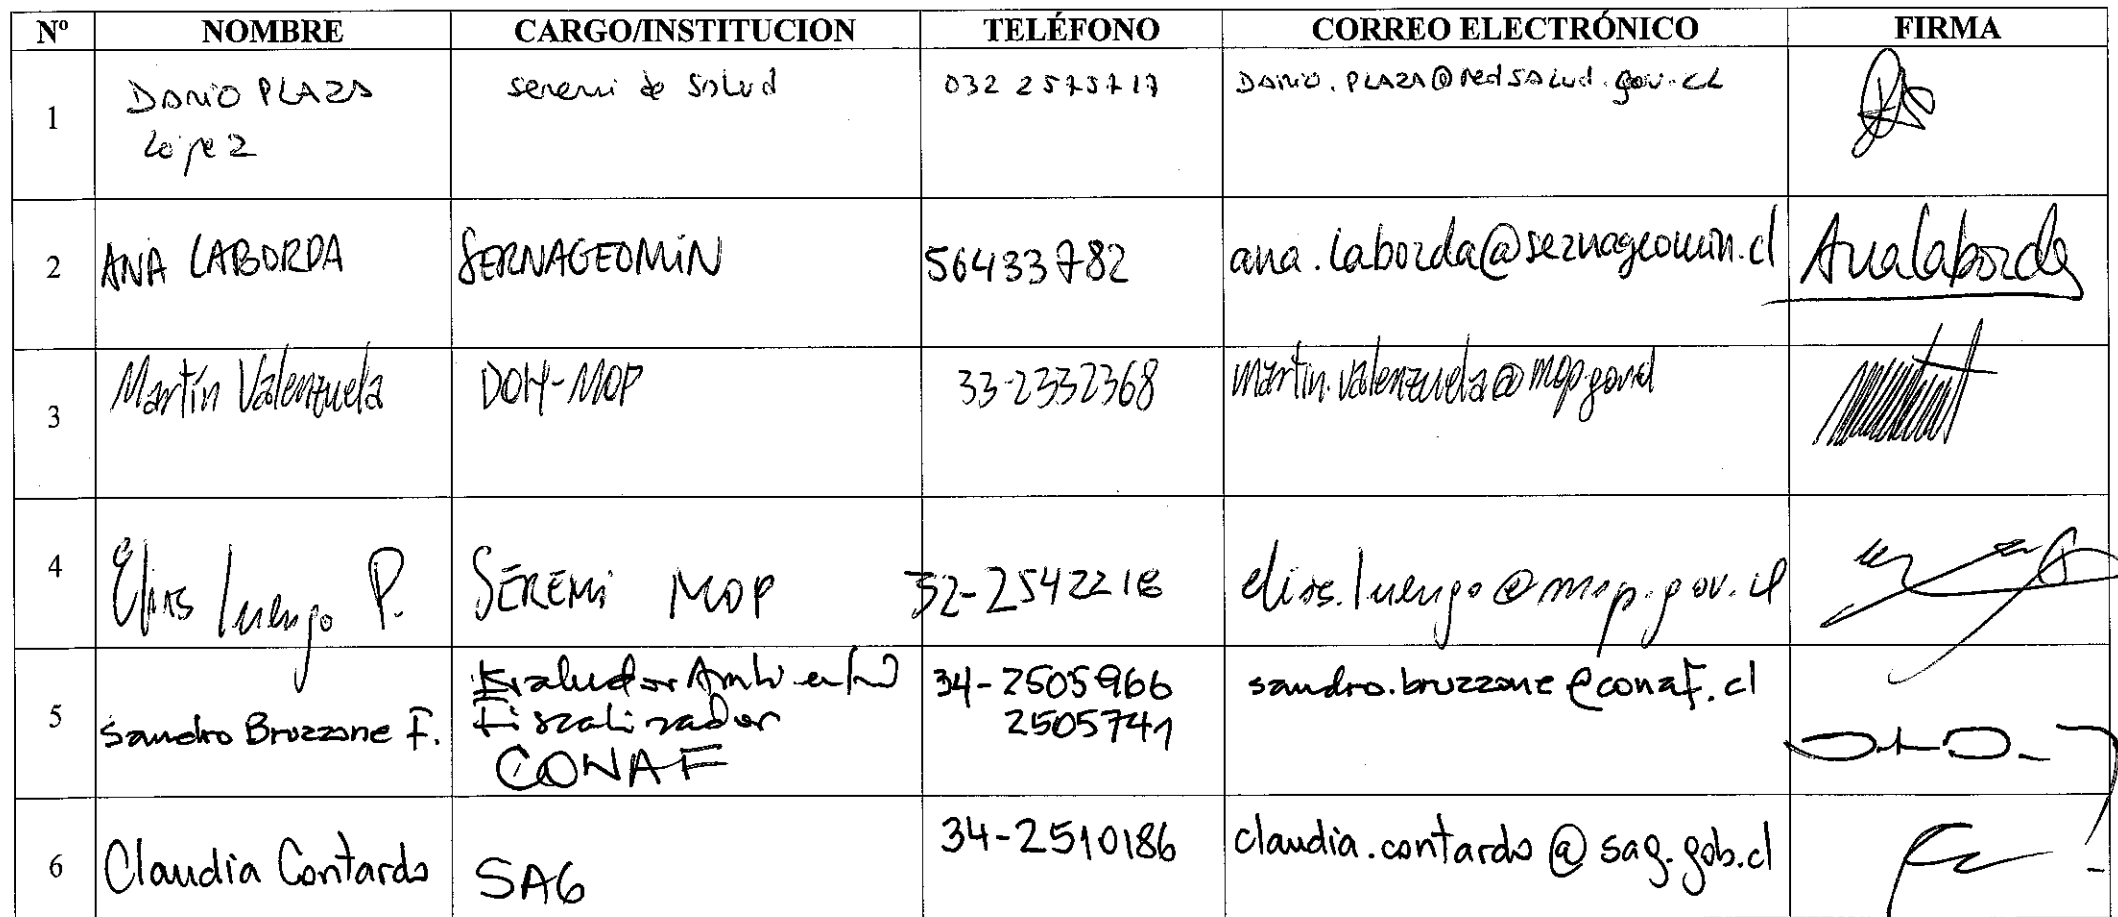 Nº NOMBRE CARGO/INSTITUCION TELÉFONO CORREO ELECTRÓNICO FIRMA
1 DARIO PLAZA López seremi de salud 032 2575717 DARIO.PLAZA@redsalud.gov.cl
2 ANA LABORDA SERNAGEOMIN 56433782 ana.laborda@sernageomin.cl Ana Laborda
3 Martín Valenzuela DOH-MOP 33-2332368 martin.valenzuela@mop.gov.cl
4 Elias Luengo P. SEREMI MOP 32-2542216 elias.luengo@mop.gov.cl
5 Sandro Bruzzone F. Evaluador Ambiental Fiscalizador CONAF 34-2505966 2505741 sandro.bruzzone@conaf.cl
6 Claudia Contardo SAG 34-2510186 claudia.contardo@sag.gob.cl